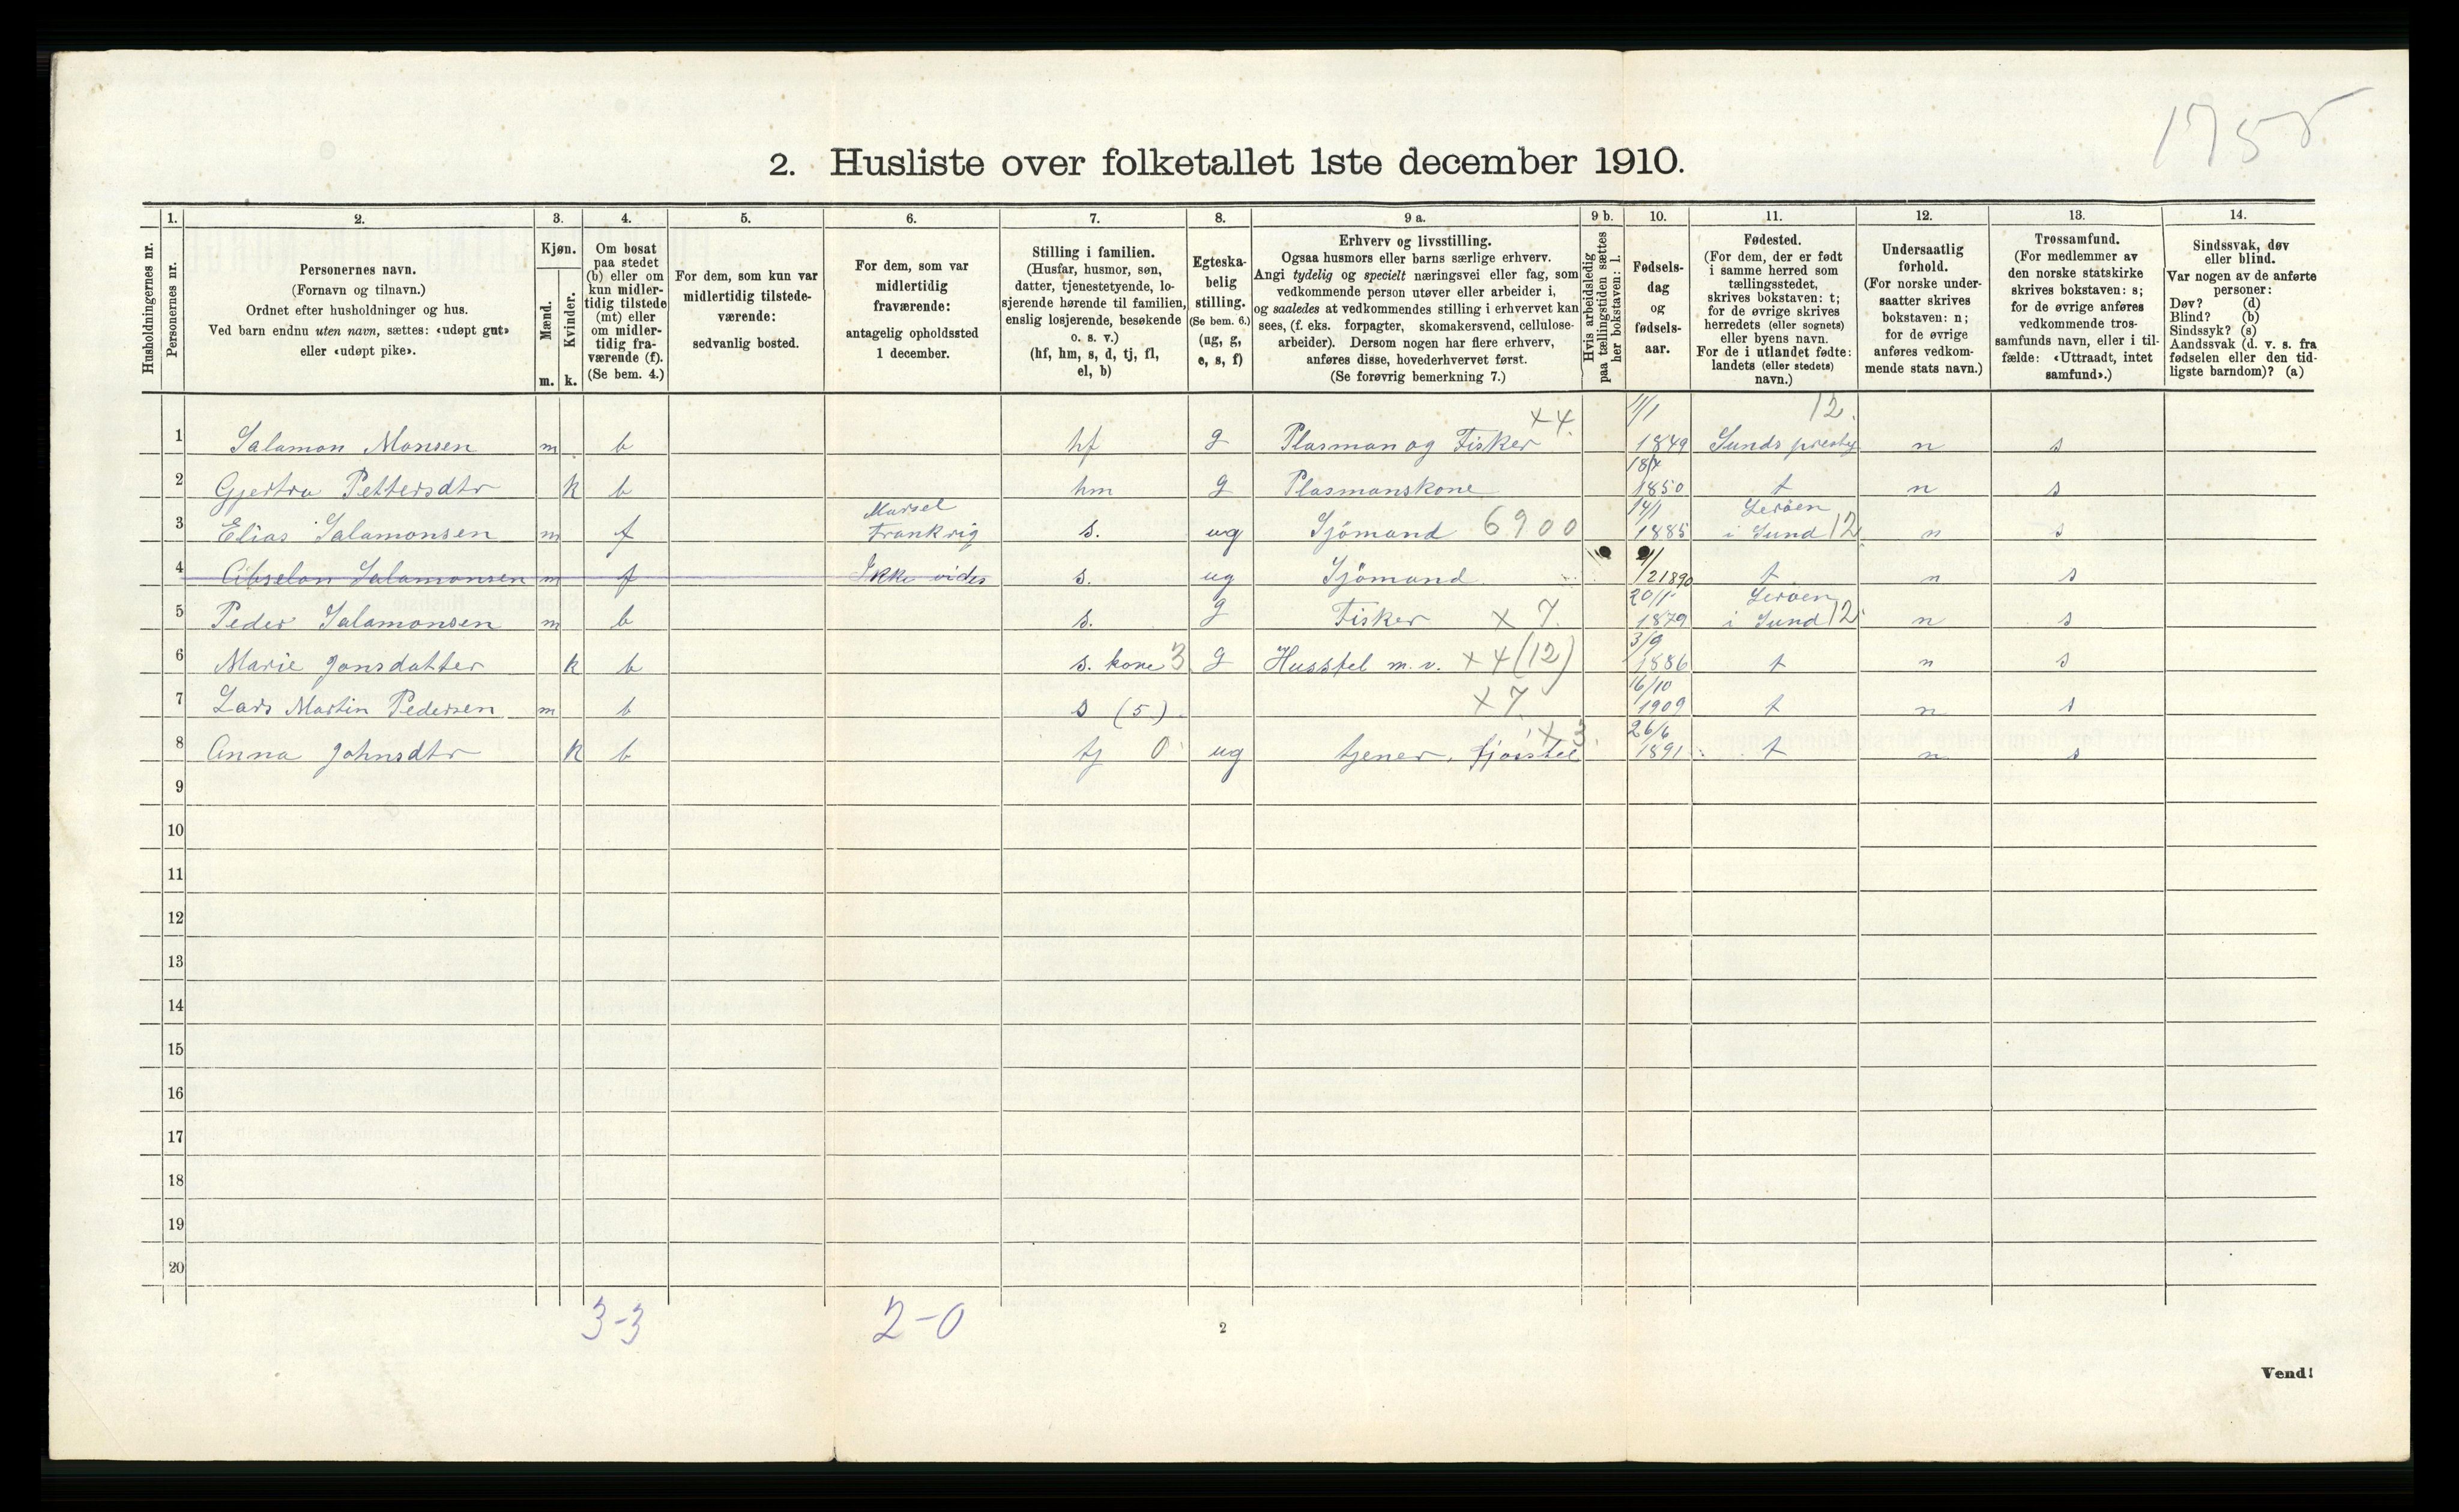 1755
2. Husliste over folketallet 1ste december 1910.
1. 2. 3. 4. 5. 6. 7. 8. 9 a. 9 b. 10. 11. 12. 13. 14.
Husholdningernes nr.
Personernes nr.
Personernes navn.
(Fornavn og tilnavn.)
Ordnet efter husholdninger og hus.
Ved barn endnu uten navn, sættes: «udøpt gut»
eller «udøpt pike».
Kjøn.
Mænd.
Kvinder.
m. k.
Om bosat
paa stedet
(b) eller om
kun midler-
tidig tilstede
(mt) eller
om midler-
tidig fra-
værende (f).
(Se bem. 4.)
For dem, som kun var
midlertidig tilstede-
værende:
sedvanlig bosted.
For dem, som var
midlertidig
fraværende:
antagelig opholdssted
1 december.
Stilling i familien.
(Husfar, husmor, søn,
datter, tjenestetyende, lo-
sjerende hørende til familien,
enslig losjerende, besøkende
o. s. v.)
(hf, hm, s, d, tj, fl,
el, b)
Egteska-
belig
stilling.
(Se bem. 6.)
(ug, g,
e, s, f)
Erhverv og livsstilling.
Ogsaa husmors eller barns særlige erhverv.
Angi tydelig og specielt næringsvei eller fag, som
vedkommende person utøver eller arbeider i,
og saaledes at vedkommendes stilling i erhvervet kan
sees, (f. eks. forpagter, skomakersvend, cellulose-
arbeider). Dersom nogen har flere erhverv,
anføres disse, hovederhvervet først.
(Se forøvrig bemerkning 7.)
Hvis arbeidsledig
paa tællingstiden sættes
her bokstaven: l.
Fødsels-
dag
og
fødsels-
aar.
Fødested.
(For dem, der er født
i samme herred som
tællingsstedet,
skrives bokstaven: t;
for de øvrige skrives
herredets (eller sognets)
eller byens navn.
For de i utlandet fødte:
landets (eller stedets)
navn.)
Undersaatlig
forhold.
(For norske under-
saatter skrives
bokstaven: n;
for de øvrige
anføres vedkom-
mende stats navn.)
Trossamfund.
(For medlemmer av
den norske statskirke
skrives bokstaven: s;
for de øvrige anføres
vedkommende tros-
samfunds navn, eller i til-
fælde: «Uttraadt, intet
samfund».)
Sindssvak, døv
eller blind.
Var nogen av de anførte
personer:
Døv? (d)
Blind? (b)
Sindssyk? (s)
Aandssvak (d. v. s. fra
fødselen eller den tid-
ligste barndom)? (a)
x 4. 12.
1 Salamon Monsen m b hf g Plasman og Fisker 1849 Sunds prestg n s
2 Gjertru Pettersdtr k b hm g Plasmanskone 1850 t n s
Marsel 14/1 Leröen
3 Elias Salamonsen m f Frankrig s. ug Sjömand 6900 1885 i Sund 12 n s
4 Abselon Salamonsen m f Ikke vides s. ug Sjömand 1890 t n s
20/1 Leröen
5 Peder Salamonsen m b s. g Fisker x 7. 1879 i Sund 12 n s
3/9
6 Marie Jonsdatter k b s. kone 3 g Husstel m. v. x 4 (12) 1886 t n s
16/10
7 Lars Martin Pedersen m b s (5) x 7. 1909 t n s
x 3. 26/6
8 Anna Johnsdtr k b tj 0 ug tjener, fjøistel 1891 t n s
9
10
11
12
13
14
15
16
17
18
19
20
3-3 2-0
2
Vend!